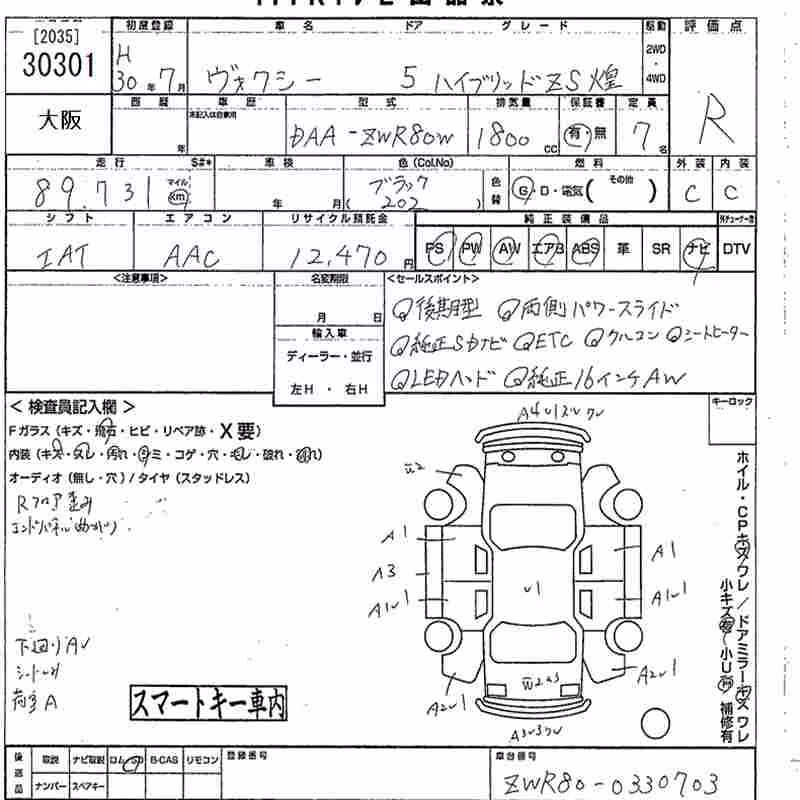 [2035]
30301
初度登録 車名 ドア グレード 駆動 評価点
H 30年 7月 ヴォクシー 5 ハイブリッドZS煌 2WD・4WD R
大阪
西暦 車歴 型式 排気量 保証書 定員
年 未記入は自家用 DAA-ZWR80W 1800cc 有・無 7名
走行 S#* 車検 色(Col.No) 燃料 外装 内装
89,731 マイル km 年 月 ブラック ( 202 ) 色替 G・D・電気( その他 ) C C
シフト エアコン リサイクル預託金 純正装備品
IAT AAC 12,470円 PS PW AW エアB ABS 革 SR ナビ DTV
<注意事項> 名変期限 <セールスポイント>
月 日
輸入車
ディーラー・並行
左H・右H
後期型 両側パワースライド
純正SDナビ ETC クルコン シートヒーター
LEDヘッド 純正16インチAW
キーロック
<検査員記入欄>
Fガラス(キズ・飛石・ヒビ・リペア跡・X要)
内装(キズ・スレ・汚れ・シミ・コゲ・穴・モレ・破れ・割れ)
オーディオ(無し・穴)/タイヤ(スタッドレス)
Rフロア歪み
エンドパネル曲がり
下廻りAU
荷室A
スマートキー車内
W2
A1
A3
A1U1
A2U1
U1
W2
A1
A1U1
A2U1
ホイル・CPキズワレ/ドアミラーキズワレ
小キズ 小U 補修有
後送品 取説 ナビ取説 ロム・SD B-CAS リモコン 登録番号 車台番号
ナンバー スペアキー ZWR80-0330703